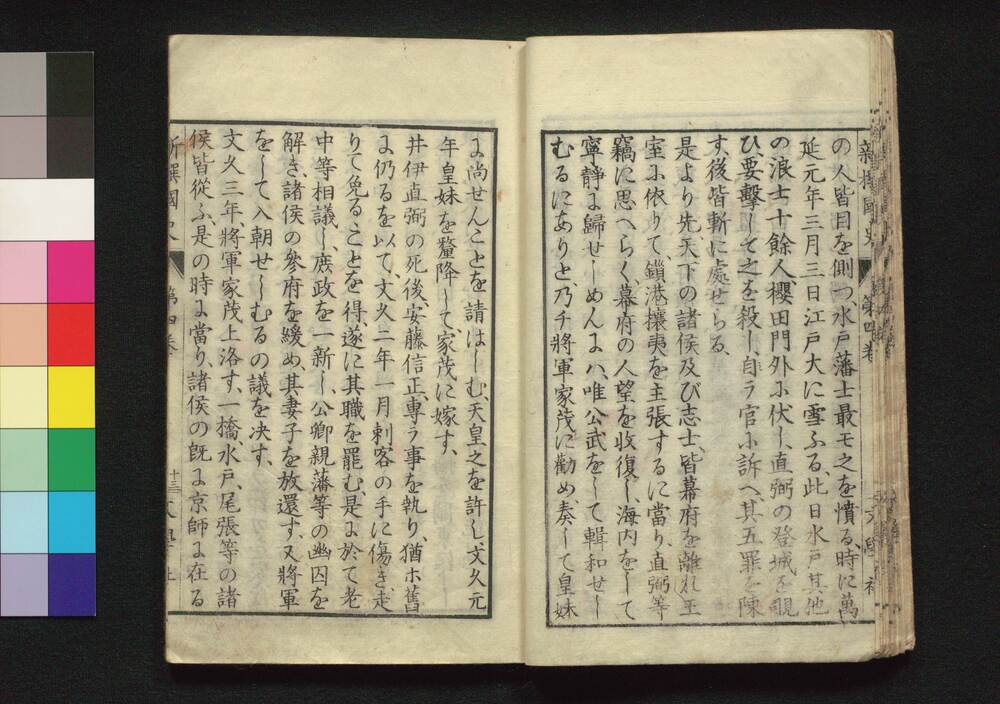 新撰國史
第四卷
文學社
の人皆目を側つ、水戸藩士最モ之を憤る、時に萬
延元年三月三日江戸大に雪ふる、此日水戸其他
の浪士十餘人櫻田門外に伏し、直弼の登城を覘
ひ、要擊して之を殺し、自ラ官に訴へ、其五罪を陳
す、後皆斬に處せらる、
是より先天下の諸侯及び志士、皆幕府を離れ王
室に依りて、鎖港攘夷を主張するに當り、直弼等
竊に思へらく、幕府の人望を收復し、海内をして
寧靜に歸せしめんにハ、唯公武をして輯和せし
むるにありと、乃チ將軍家茂に勸め、奏して皇妹
に尚せんことを請はしむ、天皇之を許し文久元
年皇妹を釐降して、家茂に嫁す、
井伊直弼の死後、安藤信正、專ラ事を執り、猶ホ舊
に仍るを以て、文久二年一月刺客の手に傷き、走
りて免るゝことを得、遂に其職を罷む、是に於て老
中等相議し庶政を一新し、公卿親藩等の幽囚を
解き、諸侯の參府を緩め、其妻子を放還す、又將軍
をして入朝せしむるの議を决す、
文久三年、將軍家茂上洛す、一橋、水戸、尾張等の諸
侯皆從ふ、是の時に當り諸侯の既に京師に在る
新撰國史
第四卷
十三
文學社